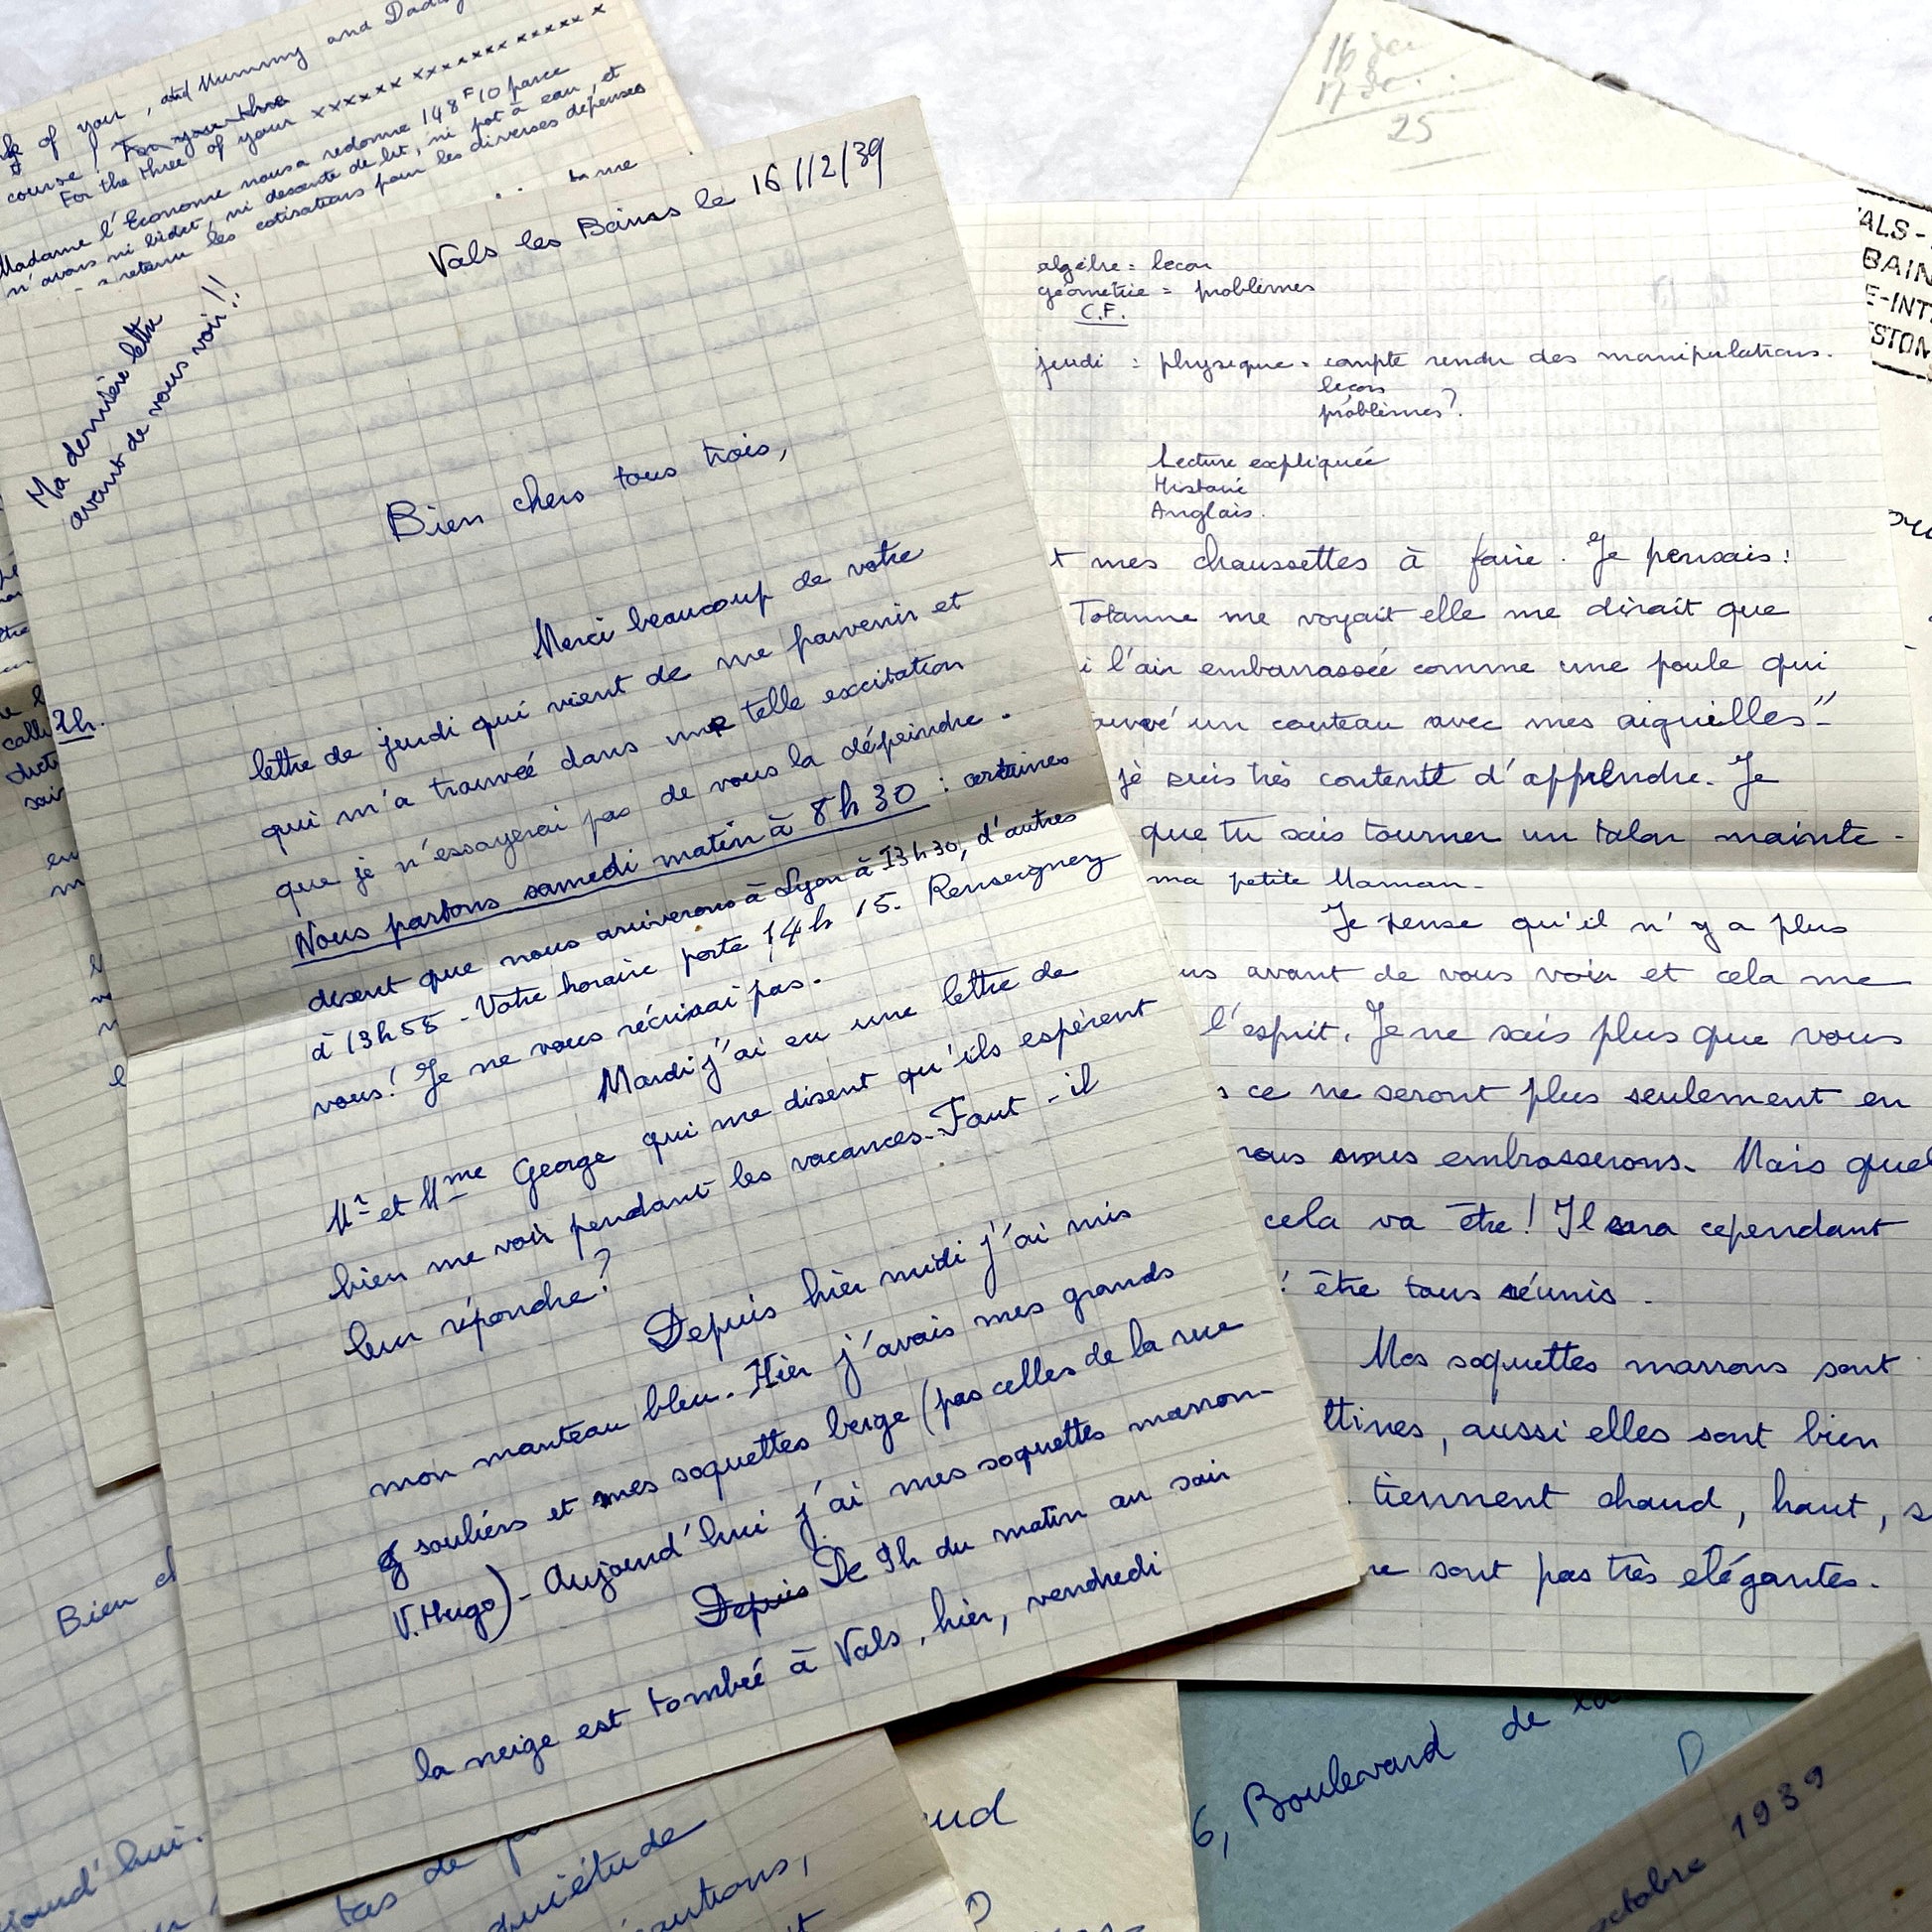 of you, and Mummy and
course!
For the three of your xxxxxx xxxxxxxxx xxxxx x
Madame l'Econome nous a redonné 148F10 parce
n'avais ni bidet, ni descente de lit, ni pot à eau, et
a retenu les cotisations pour les diverses dépenses
Ma dernière lettre
avant de vous voir!!
Vals les Bains le 16/12/39
Bien chers tous trois,
Merci beaucoup de votre
lettre de jeudi qui vient de me parvenir et
2h.
qui m'a trouvée dans une telle excitation
que je n'essayerai pas de vous la dépeindre.
Nous partons samedi matin à 8h30 : certaines
disent que nous arriverons à Lyon à 13h30, d'autres
à 13h55 - Votre horaire porte 14h 15. Renseignez
vous! Je ne vous récrirai pas.
Mardi j'ai eu une lettre de
Mr et Mme George qui me disent qu'ils espèrent
bien me voir pendant les vacances. Faut-il
leur répondre?
Depuis hier midi j'ai mis
mon manteau bleu. Hier j'avais mes grands
souliers et mes soquettes beige (pas celles de la rue
V. Hugo) - Aujourd'hui j'ai mes soquettes marron-
Depuis De 9h du matin au soir
la neige est tombée à Vals, hier, vendredi
16
25
VALS-
BAIN
E-INT
STON
algèbre = leçon
géométrie = problèmes
C.F.
jeudi : physique = compte rendu des manipulations.
leçon
problèmes?
Lecture expliquée
Histoire
Anglais.
mes chaussettes à faire. Je pensais:
Totanne me voyait elle me dirait que
i l'air embarrassée comme une poule qui
un couteau avec mes aiguilles"
je suis très contente d'apprendre. Je
que tu sais tourner un talon mainte-
ma petite Maman.
Je pense qu'il n'y a plus
avant de vous voir et cela me
l'esprit. Je ne sais plus que vous
ce ne seront plus seulement en
nous nous embrasserons. Mais quel
cela va être! Il sera cependant
! être tous réunis.
Mes soquettes marrons sont
ttines, aussi elles sont bien
tiennent chaud, haut,
ne sont pas très élégantes.
Bien
jourd'hui.
tas de
quiétude
autions,
6, Boulevard de la
octobre 1939